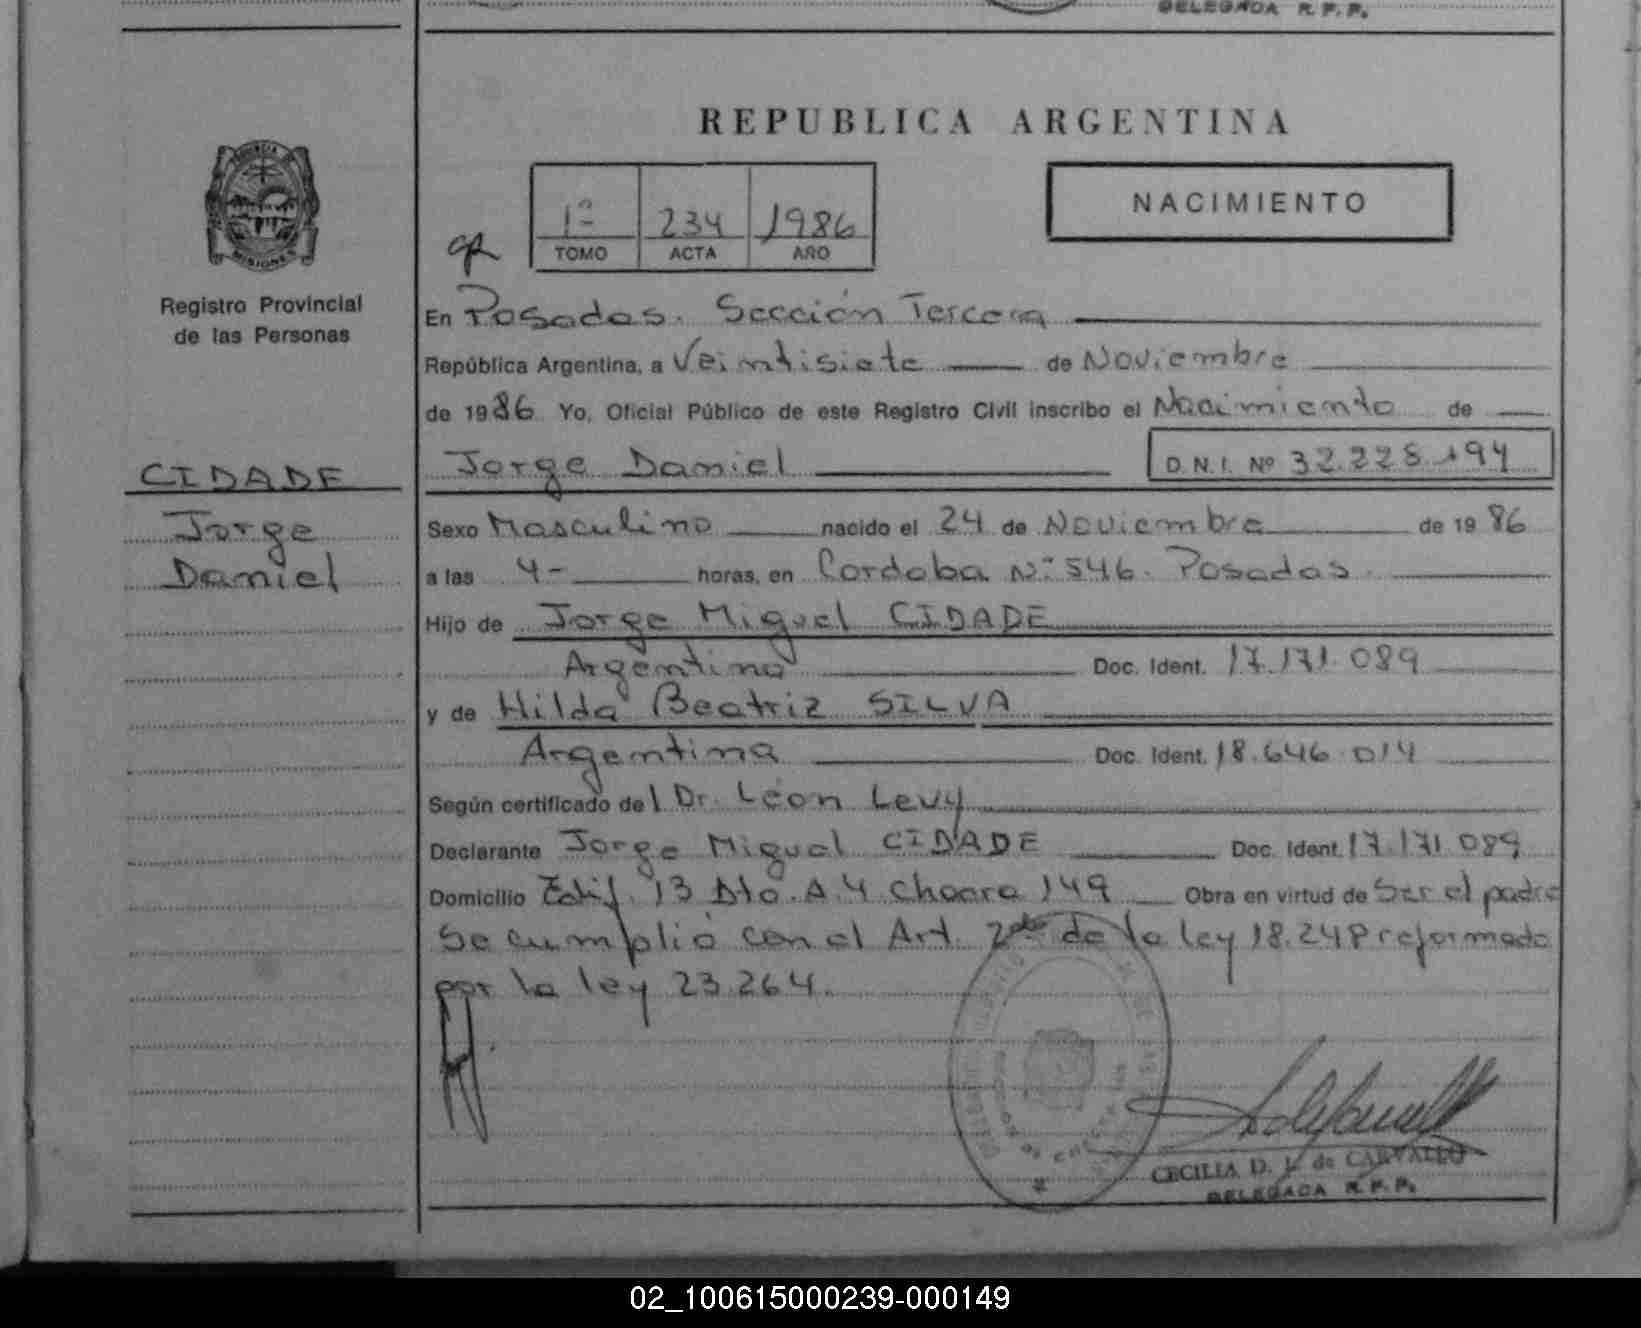 DELEGADA R.P.P.
REPUBLICA ARGENTINA
PROVINCIA DE
MISIONES
Registro Provincial
de las Personas
CIDADE
Jorge
Daniel
1º 234 1986
TOMO ACTA AÑO
NACIMIENTO
En Posadas. Sección Tercera
República Argentina, a Veintisiete de Noviembre
de 1986 Yo, Oficial Público de este Registro Civil inscribo el Nacimiento de
Jorge Daniel D.N.I. Nº 32.228.194
Sexo Masculino nacido el 24 de Noviembre de 1986
a las 4- horas, en Cordoba Nº 546. Posadas.
Hijo de Jorge Miguel CIDADE
Argentino Doc. Ident. 17.171.089
y de Hilda Beatriz SILVA
Argentina Doc. Ident. 18.646.014
Según certificado del Dr. León Levy
Declarante Jorge Miguel CIDADE Doc. Ident. 17.171.089
Domicilio Edif. 13 Dto. A.4 Chacra 149 Obra en virtud de Ser el padre
Se cumplió con el Art. 2do de la ley 18.248 reformado
por la ley 23.264.
CECILIA D. L. de CARVALLO
DELEGADA R.P.P.
02_100615000239-000149